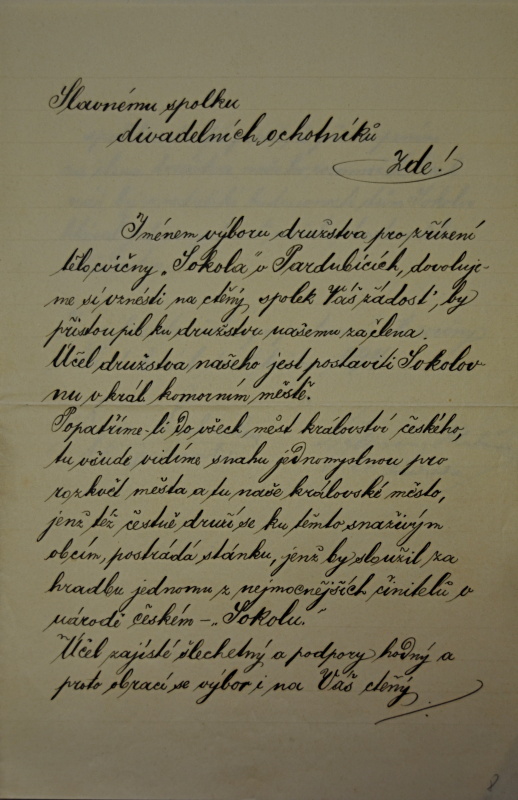 Slavnému spolku
divadelních ochotníků
Zde!
Jménem výboru družstva pro zřízení
tělocvičny „Sokola" v Pardubicích, dovoluje-
me si vznésti na ctěný spolek Váš žádost, by
přistoupil ku družstvu našemu za člena.
Účel družstva našeho jest postaviti Sokolov-
nu v král. komorním městě.
Popatříme-li do všech měst království českého,
tu všude vidíme snahu jednomyslnou pro
rozkvět města a tu naše královské město,
jenž též čestně druží se ku těmto snaživým
obcím, postrádá stánku, jenž by sloužil za
hradbu jednomu z nejmocnějších činitelů v
národě českém – „Sokolu."
Účel zajisté šlechetný a podpory hodný a
proto obrací se výbor i na Váš ctěný
8